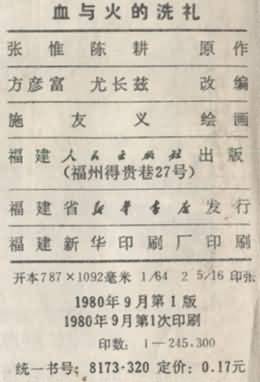 血与火的洗礼
张惟陈耕 原作
方彦富 尤长兹 改编
施友义 绘画
福建人民出版社出版
(福州得贵巷27号)
福建省新华书店发行
福建新华印刷厂印刷
开本787×1092毫米 1/64 2 5/16印张
1980年9月第1版
1980年9月第1次印刷
印数：1—245,300
统一书号：8173·320 定价：0.17元